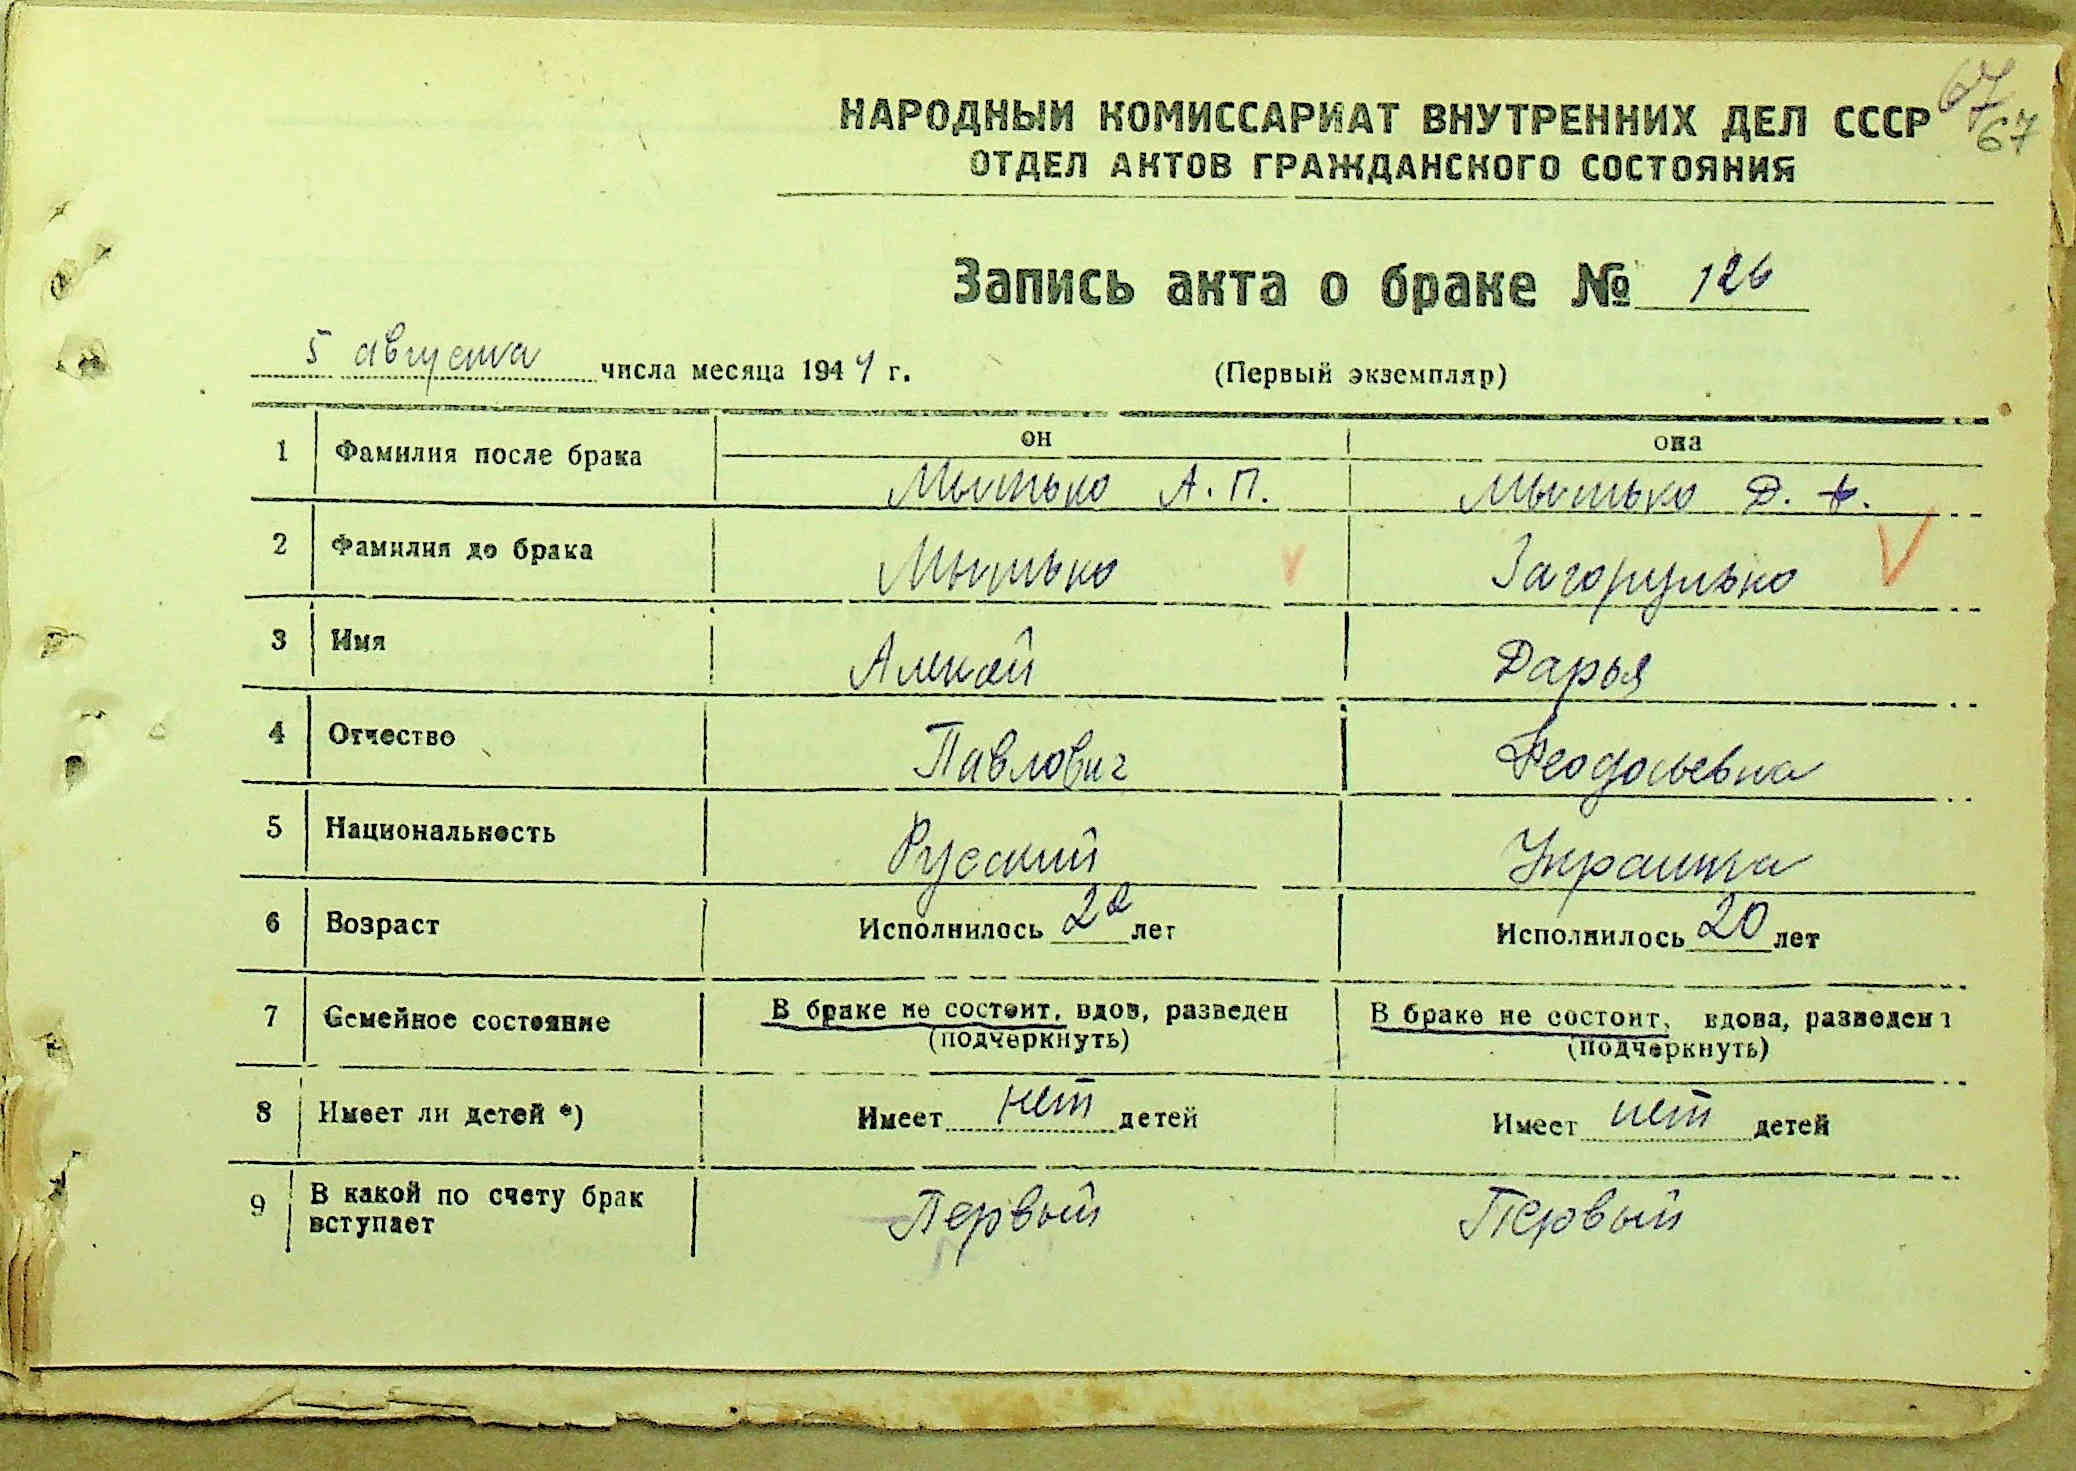 67
67
НАРОДНЫЙ КОМИССАРИАТ ВНУТРЕННИХ ДЕЛ СССР
ОТДЕЛ АКТОВ ГРАЖДАНСКОГО СОСТОЯНИЯ
Запись акта о браке № 126
5 августа числа месяца 1944 г. (Первый экземпляр)
он она
1 Фамилия после брака Мытько А. П. Мытько Д. Ф.
2 Фамилия до брака Мытько Загорулько
3 Имя Алексей Дарья
4 Отчество Павлович Феодосьевна
5 Национальность Русский Украинка
6 Возраст Исполнилось 22 лет Исполнилось 20 лет
7 Семейное состояние В браке не состоит, вдов, разведен В браке не состоит, вдова, разведена
(подчеркнуть) (подчеркнуть)
8 Имеет ли детей *) Имеет нет детей Имеет нет детей
9 В какой по счету брак вступает Первый Первый